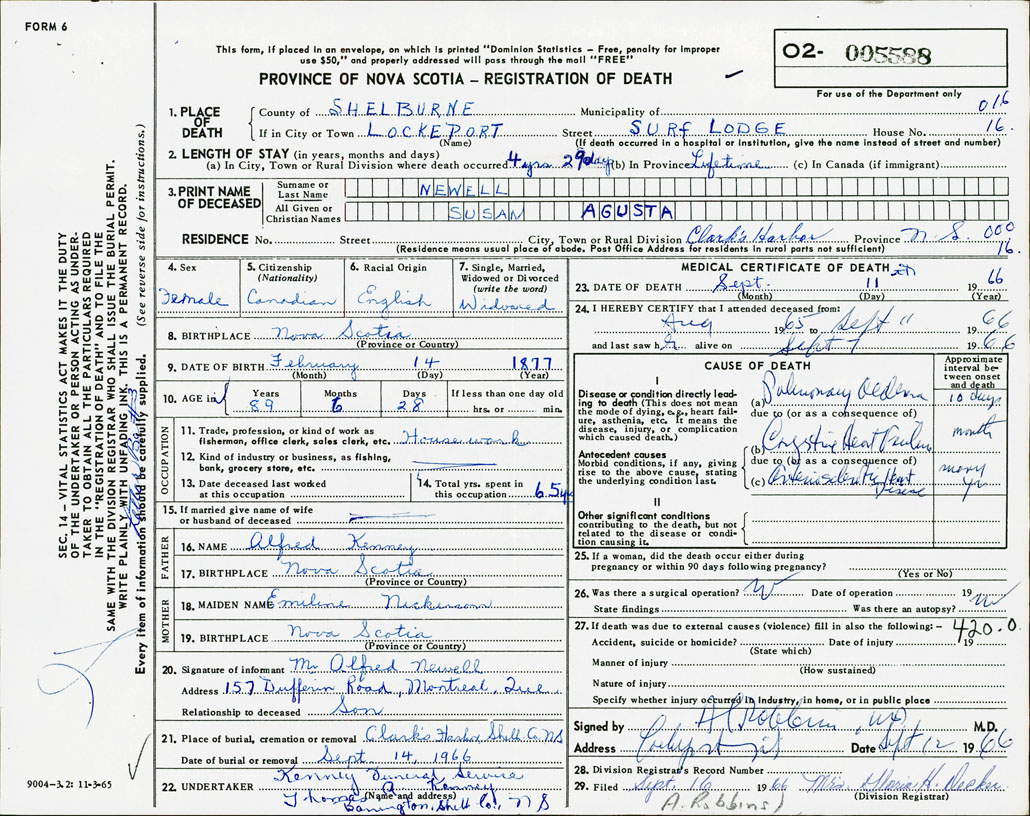 FORM 6
This form, if placed in an envelope, on which is printed "Dominion Statistics – Free, penalty for improper
use $50," and properly addressed will pass through the mail "FREE"
PROVINCE OF NOVA SCOTIA – REGISTRATION OF DEATH
O2- 005588
For use of the Department only
016
1. PLACE OF DEATH County of SHELBURNE Municipality of
If in City or Town LOCKEPORT Street SURF LODGE House No. 16.
(Name) (If death occurred in a hospital or institution, give the name instead of street and number)
2. LENGTH OF STAY (in years, months and days)
(a) In City, Town or Rural Division where death occurred 4 yrs 29 days (b) In Province Lifetime (c) In Canada (if immigrant)
3. PRINT NAME OF DECEASED Surname or Last Name NEWELL
All Given or Christian Names SUSAN AGUSTA
RESIDENCE No. Street City, Town or Rural Division Clark's Harbor Province N.S. 000
(Residence means usual place of abode. Post Office Address for residents in rural parts not sufficient) 16.
4. Sex Female
5. Citizenship (Nationality) Canadian
6. Racial Origin English
7. Single, Married, Widowed or Divorced (write the word) Widowed
8. BIRTHPLACE Nova Scotia
(Province or Country)
9. DATE OF BIRTH February 14 1877
(Month) (Day) (Year)
10. AGE in Years 89 Months 6 Days 28 If less than one day old hrs. or min.
OCCUPATION
11. Trade, profession, or kind of work as
fisherman, office clerk, sales clerk, etc. Housework
12. Kind of industry or business, as fishing,
bank, grocery store, etc.
13. Date deceased last worked
at this occupation
14. Total yrs. spent in
this occupation 65 yrs
15. If married give name of wife
or husband of deceased
FATHER
16. NAME Alfred Kenney
17. BIRTHPLACE Nova Scotia
(Province or Country)
MOTHER
18. MAIDEN NAME Emiline Nickerson
19. BIRTHPLACE Nova Scotia
(Province or Country)
20. Signature of informant Mr Alfred Newell
Address 157 Dufferin Road, Montreal, Que
Relationship to deceased Son
21. Place of burial, cremation or removal Clark's Harbor Shell Co. NS
Date of burial or removal Sept. 14, 1966
22. UNDERTAKER Kenney Funeral Service
Thomas A. Kenney
(Name and address)
Barrington, Shell Co., NS
MEDICAL CERTIFICATE OF DEATH
23. DATE OF DEATH Sept. 11 1966
(Month) (Day) (Year)
24. I HEREBY CERTIFY that I attended deceased from:
Aug 1965 to Sept 11 1966
and last saw h alive on Sept 7 1966
CAUSE OF DEATH
Approximate interval between onset and death
I
Disease or condition directly leading to death (This does not mean the mode of dying, e.g., heart failure, asthenia, etc. It means the disease, injury, or complication which caused death.)
(a) Pulmonary Oedema 10 days
due to (or as a consequence of)
Antecedent causes
Morbid conditions, if any, giving rise to the above cause, stating the underlying condition last.
(b) Congestive Heart Failure month
due to (or as a consequence of)
(c) Arteriosclerotic Heart Disease many yr
II
Other significant conditions
contributing to the death, but not
related to the disease or condition causing it.
25. If a woman, did the death occur either during
pregnancy or within 90 days following pregnancy?
(Yes or No)
26. Was there a surgical operation? Date of operation 19
State findings Was there an autopsy?
27. If death was due to external causes (violence) fill in also the following: – 420.0
Accident, suicide or homicide? Date of injury 19
(State which)
Manner of injury
(How sustained)
Nature of injury
Specify whether injury occurred in industry, in home, or in public place
Signed by M.D.
Address Date Sept 12 1966
28. Division Registrar's Record Number
29. Filed Sept. 16 1966 Mrs. H.
(Division Registrar)
A. Robbins)
SEC. 14 – VITAL STATISTICS ACT MAKES IT THE DUTY
OF THE UNDERTAKER OR PERSON ACTING AS UNDERTAKER TO OBTAIN ALL THE PARTICULARS REQUIRED
IN THE "REGISTRATION OF DEATH" AND TO FILE THE
SAME WITH THE DIVISION REGISTRAR WHO SHALL ISSUE THE BURIAL PERMIT.
WRITE PLAINLY WITH UNFADING INK. THIS IS A PERMANENT RECORD.
Every item of information should be carefully supplied. (See reverse side for instructions.)
9004-3.2: 11-3-65